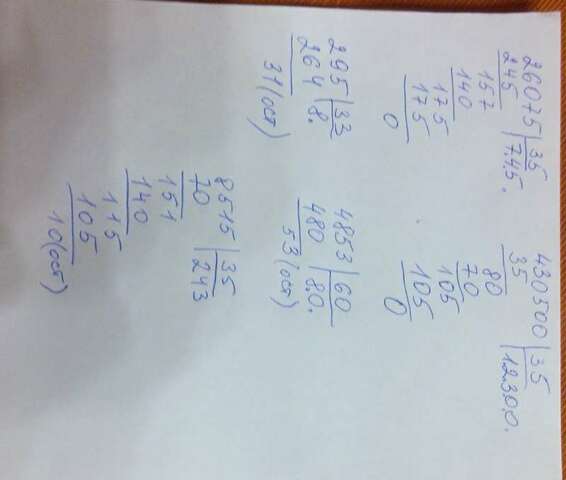 26075 | 35
245 | 745.
157
140
175
175
0
430500 | 35
35 | 12300.
80
70
105
105
0
295 | 33
264 | 8.
31 (ост)
4853 | 60
480 | 80.
53 (ост)
8515 | 35
70 | 243
151
140
115
105
10 (ост)